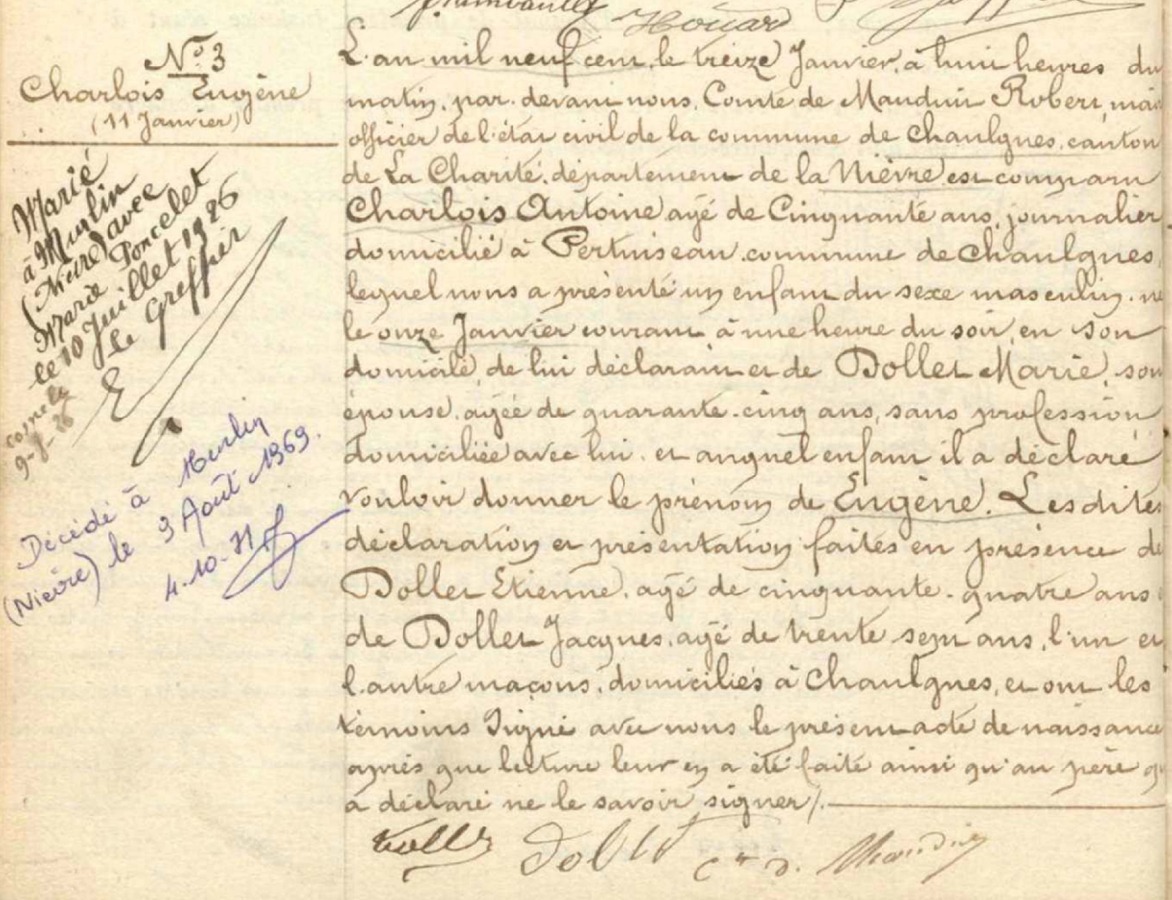 Houard
N° 3
Charlois Eugène
(11 Janvier)
Marié
à Murlin
(Nièvre) avec
Marie Poncelet
le 10 Juillet 1926
le Greffier
Cosne le
Décédé à Murlin
(Nièvre) le 3 Août 1969.
4.10.71
L'an mil neuf cent, le treize Janvier, à huit heures du
matin, par devant nous, Comte de Mauduit Robert, mai
officier de l'état civil de la commune de Chaulgnes, canton
de La Charité, département de la Nièvre est comparu
Charlois Antoine agé de Cinquante ans, journalier
domicilié à Pertuiseau, commune de Chaulgnes,
lequel nous a présenté un enfant du sexe masculin, né
le onze Janvier courant à une heure du soir, en son
domicile, de lui déclarant et de Dollet Marie, son
épouse, agée de quarante-cinq ans, sans profession
domiciliée avec lui, et auquel enfant il a déclaré
vouloir donner le prénom de Eugène. Les dites
déclaration et présentation faites en présence de
Dollet Etienne, agé de cinquante-quatre ans
de Dollet Jacques, agé de trente sept ans, l'un et
l'autre maçons, domiciliés à Chaulgnes, et ont les
témoins signé avec nous le présent acte de naissance
après que lecture leur en a été faite ainsi qu'au père qu
a déclaré ne le savoir signer /.
Dollet C<sup>te</sup> D. Mauduit